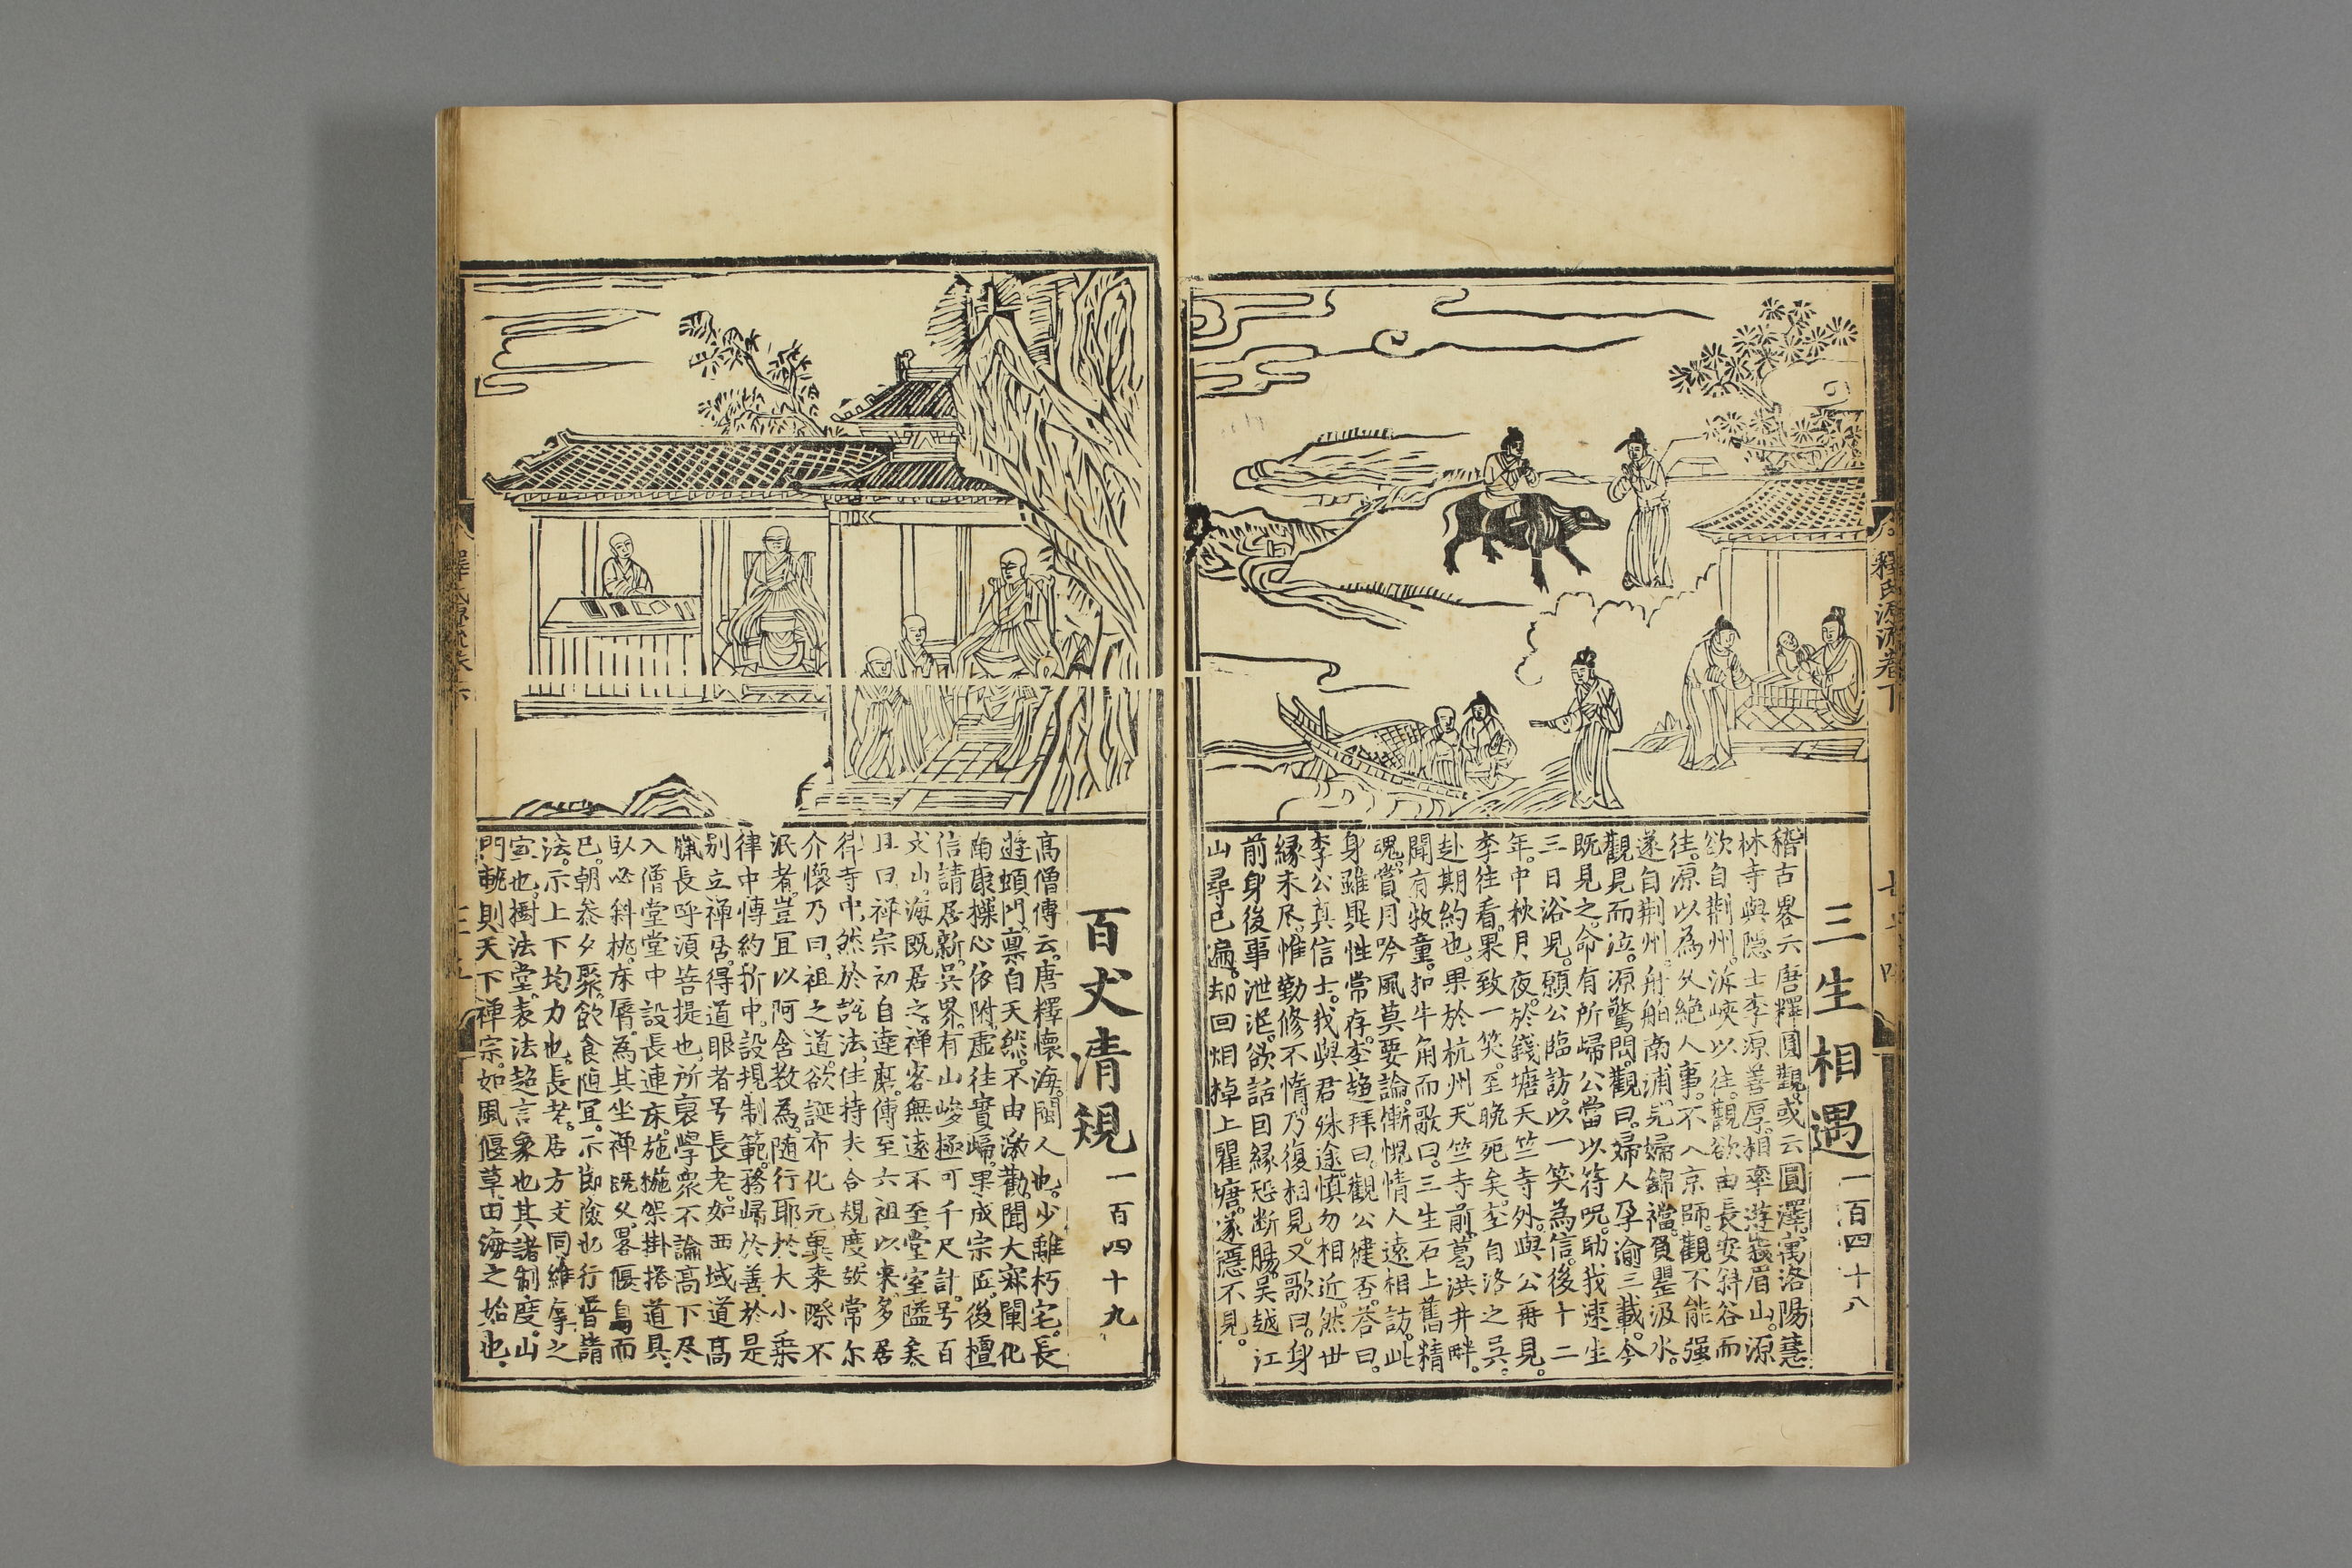 釋氏源流卷下
三生相遇一百四十八
稽古畧云唐釋圓觀。或云圓澤。寓洛陽惠
林寺與隱士李源善厚。相率遊峩眉山。源
欲自荆州。泝峽以往。觀欲由長安斜谷而
往。源以為久絶人事。不入京師。觀不能强
遂自荆州。舟舶南浦。見婦錦襠。負甖汲水。
觀見而泣。源驚問。觀曰。婦人孕逾三載。今
既見之。命有所歸公當以符呪。助我速生
三日浴児。願公臨訪。以一笑為信。後十二
年。中秋月夜。於錢塘天竺寺外。與公再見。
李往看。果致一笑。至晚死矣。李自洛之吳。
赴期約也。果於杭州。天竺寺前。葛洪井畔。
聞有牧童。扣牛角而歌曰。三生石上舊精
魂。賞月吟風莫要論。慚愧情人遠相訪。此
身雖異性常存。李趨拜曰。觀公徤否。荅曰。
李公真信士。我與君殊途。慎勿相近。然世
縁未尽。惟勤修不惰。乃復相見。又歌曰。身
前身後事泄泯。欲話因縁恐断腸。吴越江
山尋已遍。却回烟棹上瞿塘。遂隱不見。
百丈清規一百四十九
高僧傳云。唐釋懐海。閩人也。少離朽宅。長
遊頓門。禀自天然。不由激勸。聞大寂闡化
南康。操心依附。虚往實歸。果成宗匠。後檀
信請居新吴界。有山峻極可千尺計。号百
丈山。海既居之。禅客無遠不至。堂室隘矣
且曰。禅宗初自達磨。傳至六祖以来。多居
律寺中。然於說法。住持夫合規度。故常尔
介懐乃曰。祖之道。欲誕布化元冀来際不
泯者。豈冝以阿含教為。随行耶。於大小乗
律中愽約折中。設規制範。務歸於善。於是
别立禅居。得道眼者号長老。如西域道髙
臘長呼須菩提也。所裒學衆不論高下。尽
入僧堂堂中設長連床。施椸架掛搭道具。
臥必斜枕床脣。為其坐禅既久。畧偃息而
已。朝叅夕聚。飲食随冝。示節儉也。行普請
法。示上下均力也。長老。居方丈同維摩之
室也。樹法堂。表法超言象也。其諸制度。山
門軌則。天下禅宗。如風偃草。由海之始也。